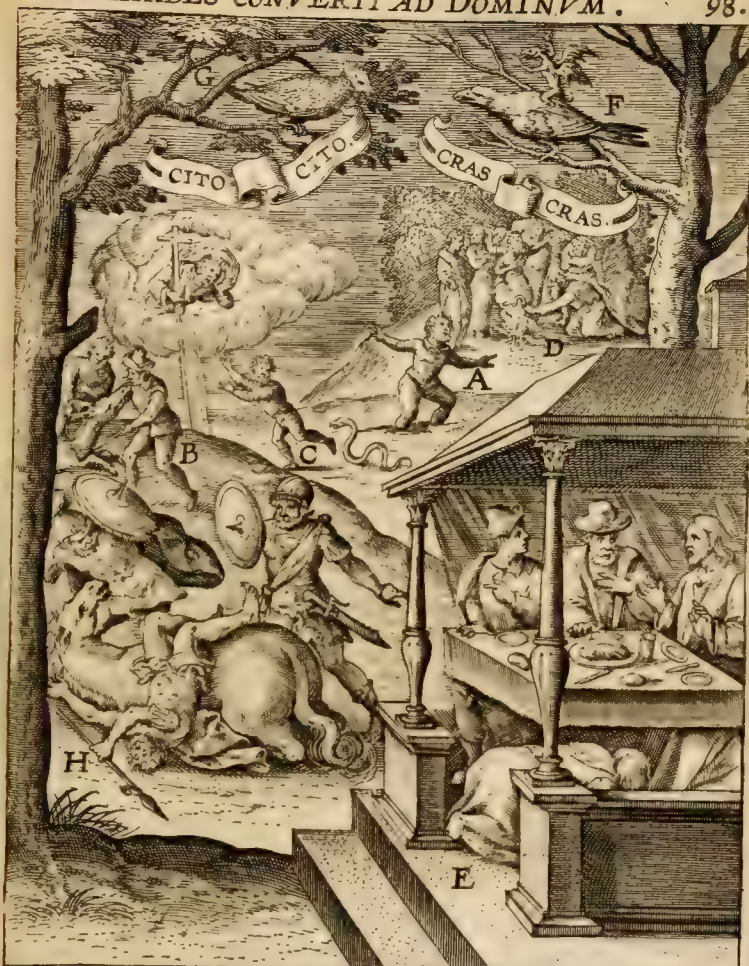 CONVERTI AD DOMINVM. 98.
G
F
CITO CITO.
CRAS CRAS.
D
A
B
C
H
E